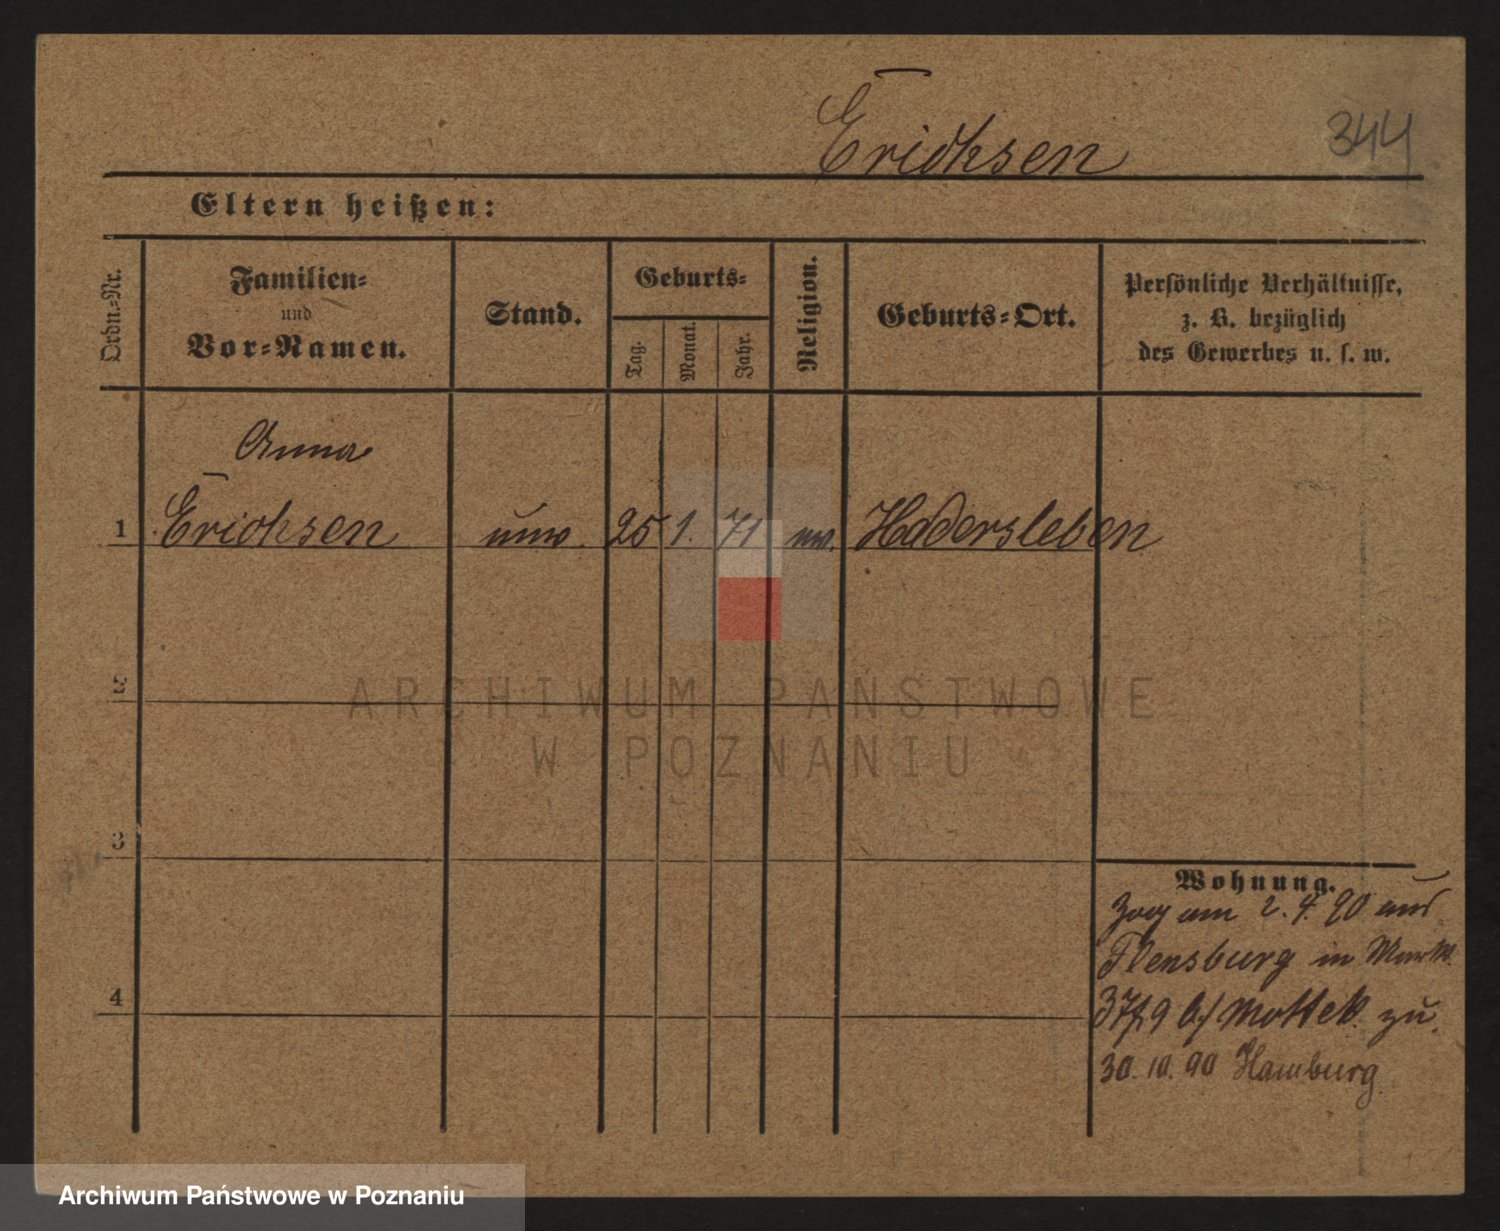 Erichsen
344
Eltern heißen:
Ordn.-Nr.
Familien-
und
Vor-Namen.
Stand.
Geburts-
Tag.
Monat.
Jahr.
Religion.
Geburts-Ort.
Persönliche Verhältnisse,
z. B. bezüglich
des Gewerbes u. s. w.
Anna
1 Erichsen unv. 25 1. 71 ev. Hadersleben
2
3
4
Wohnung.
Zog am 2. 4. 90 aus
Flensburg in Markt
37/9 b/ Mottek zu.
30. 10. 90 Hamburg
ARCHIWUM PAŃSTWOWE
W POZNANIU
Archiwum Państwowe w Poznaniu